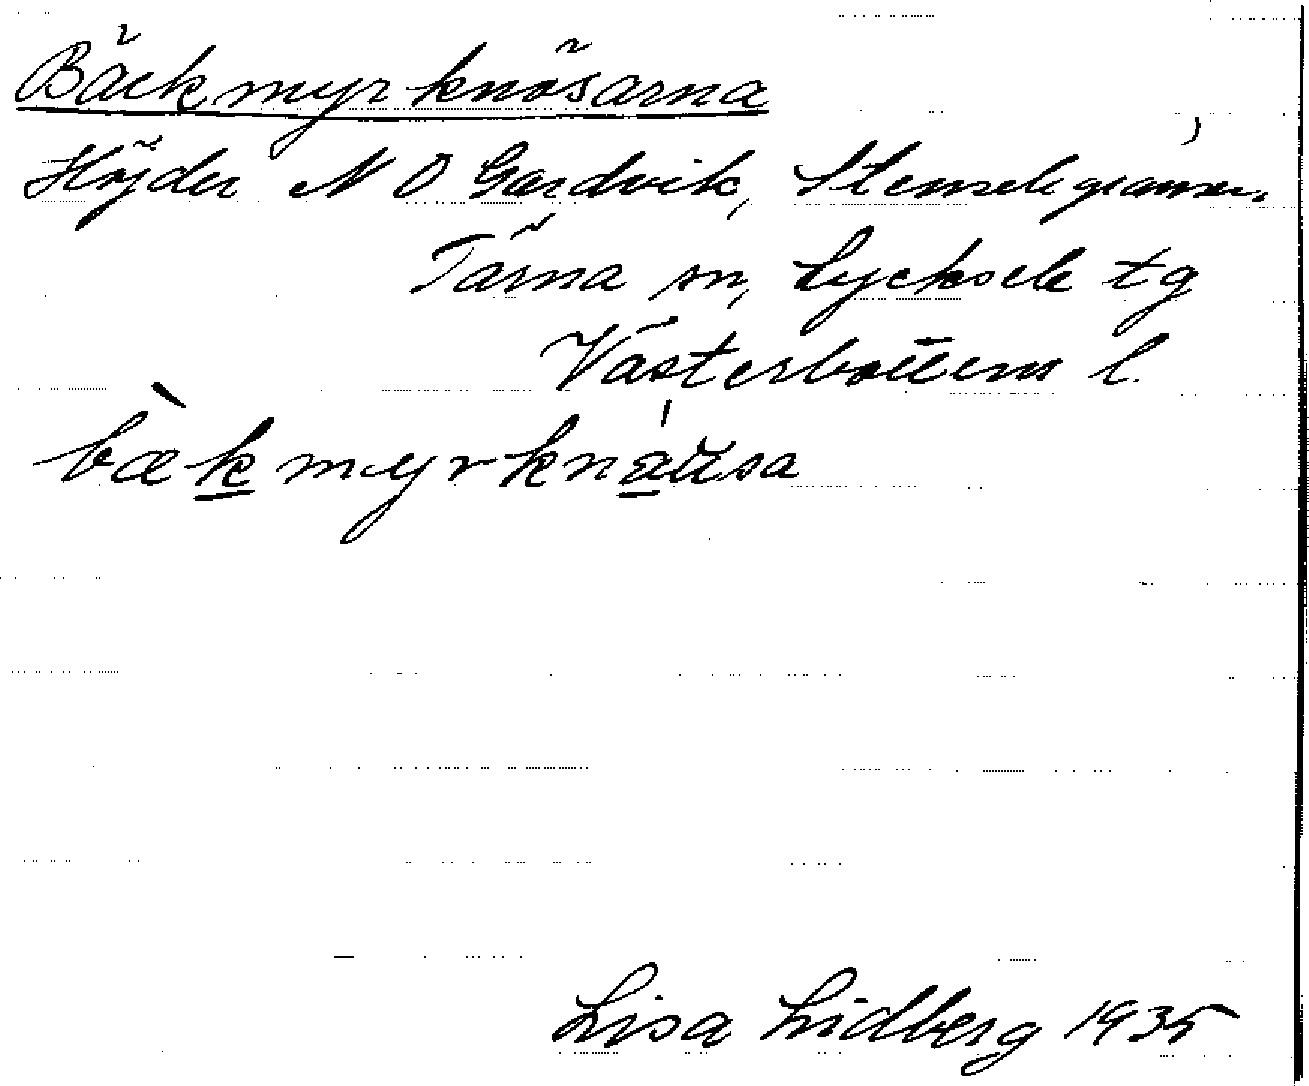 Bäckmyrknösarna
Höjder N O Gardvik, Stenselegränsen,
Tärna sn, Lycksele tg
Västerbottens l.
bækmyrknausa
Lisa Lidberg 1935